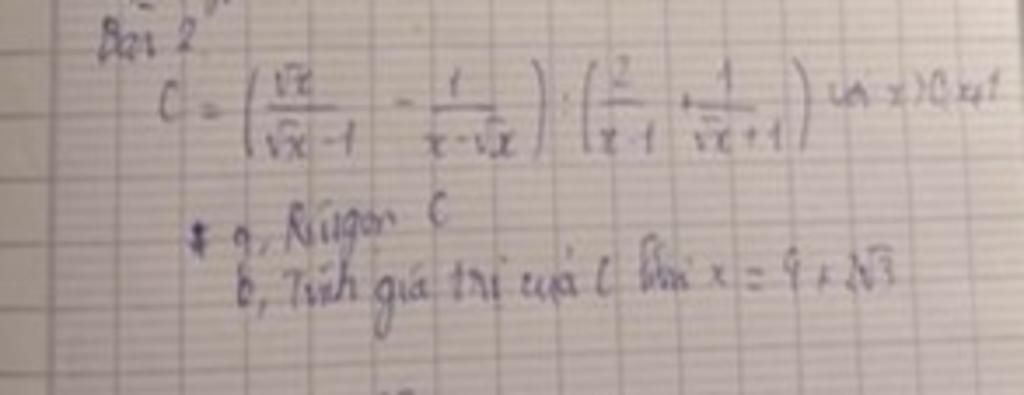 Bài 2
C = (√x / (√x - 1) - 1 / (x - √x)) : (2 / (x - 1) + 1 / (√x + 1)) với x > 0 x ≠ 1
a, Rút gọn C
b, Tính giá trị của C khi x =